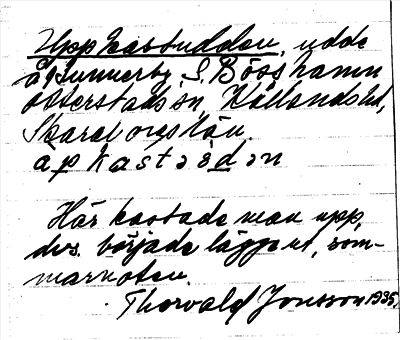 Uppkastudden, udde
å Sunnerby, S. Böshamn
Otterstads sn, Kållands hd,
Skaraborgs län.
ápkastədən
Här kastade man upp,
dvs. började lägga ut, som-
marnoten.
Thorvald Jonsson 1935.